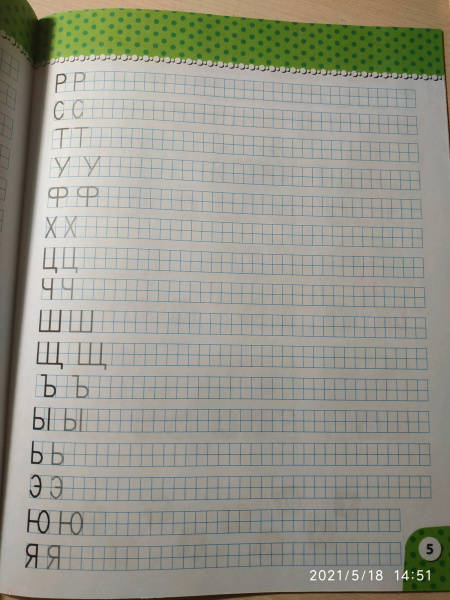 Р Р
С С
Т Т
У У
Ф Ф
Х Х
Ц Ц
Ч Ч
Ш Ш
Щ Щ
Ъ Ъ
Ы Ы
Ь Ь
Э Э
Ю Ю
Я Я
5
2021/5/18 14:51